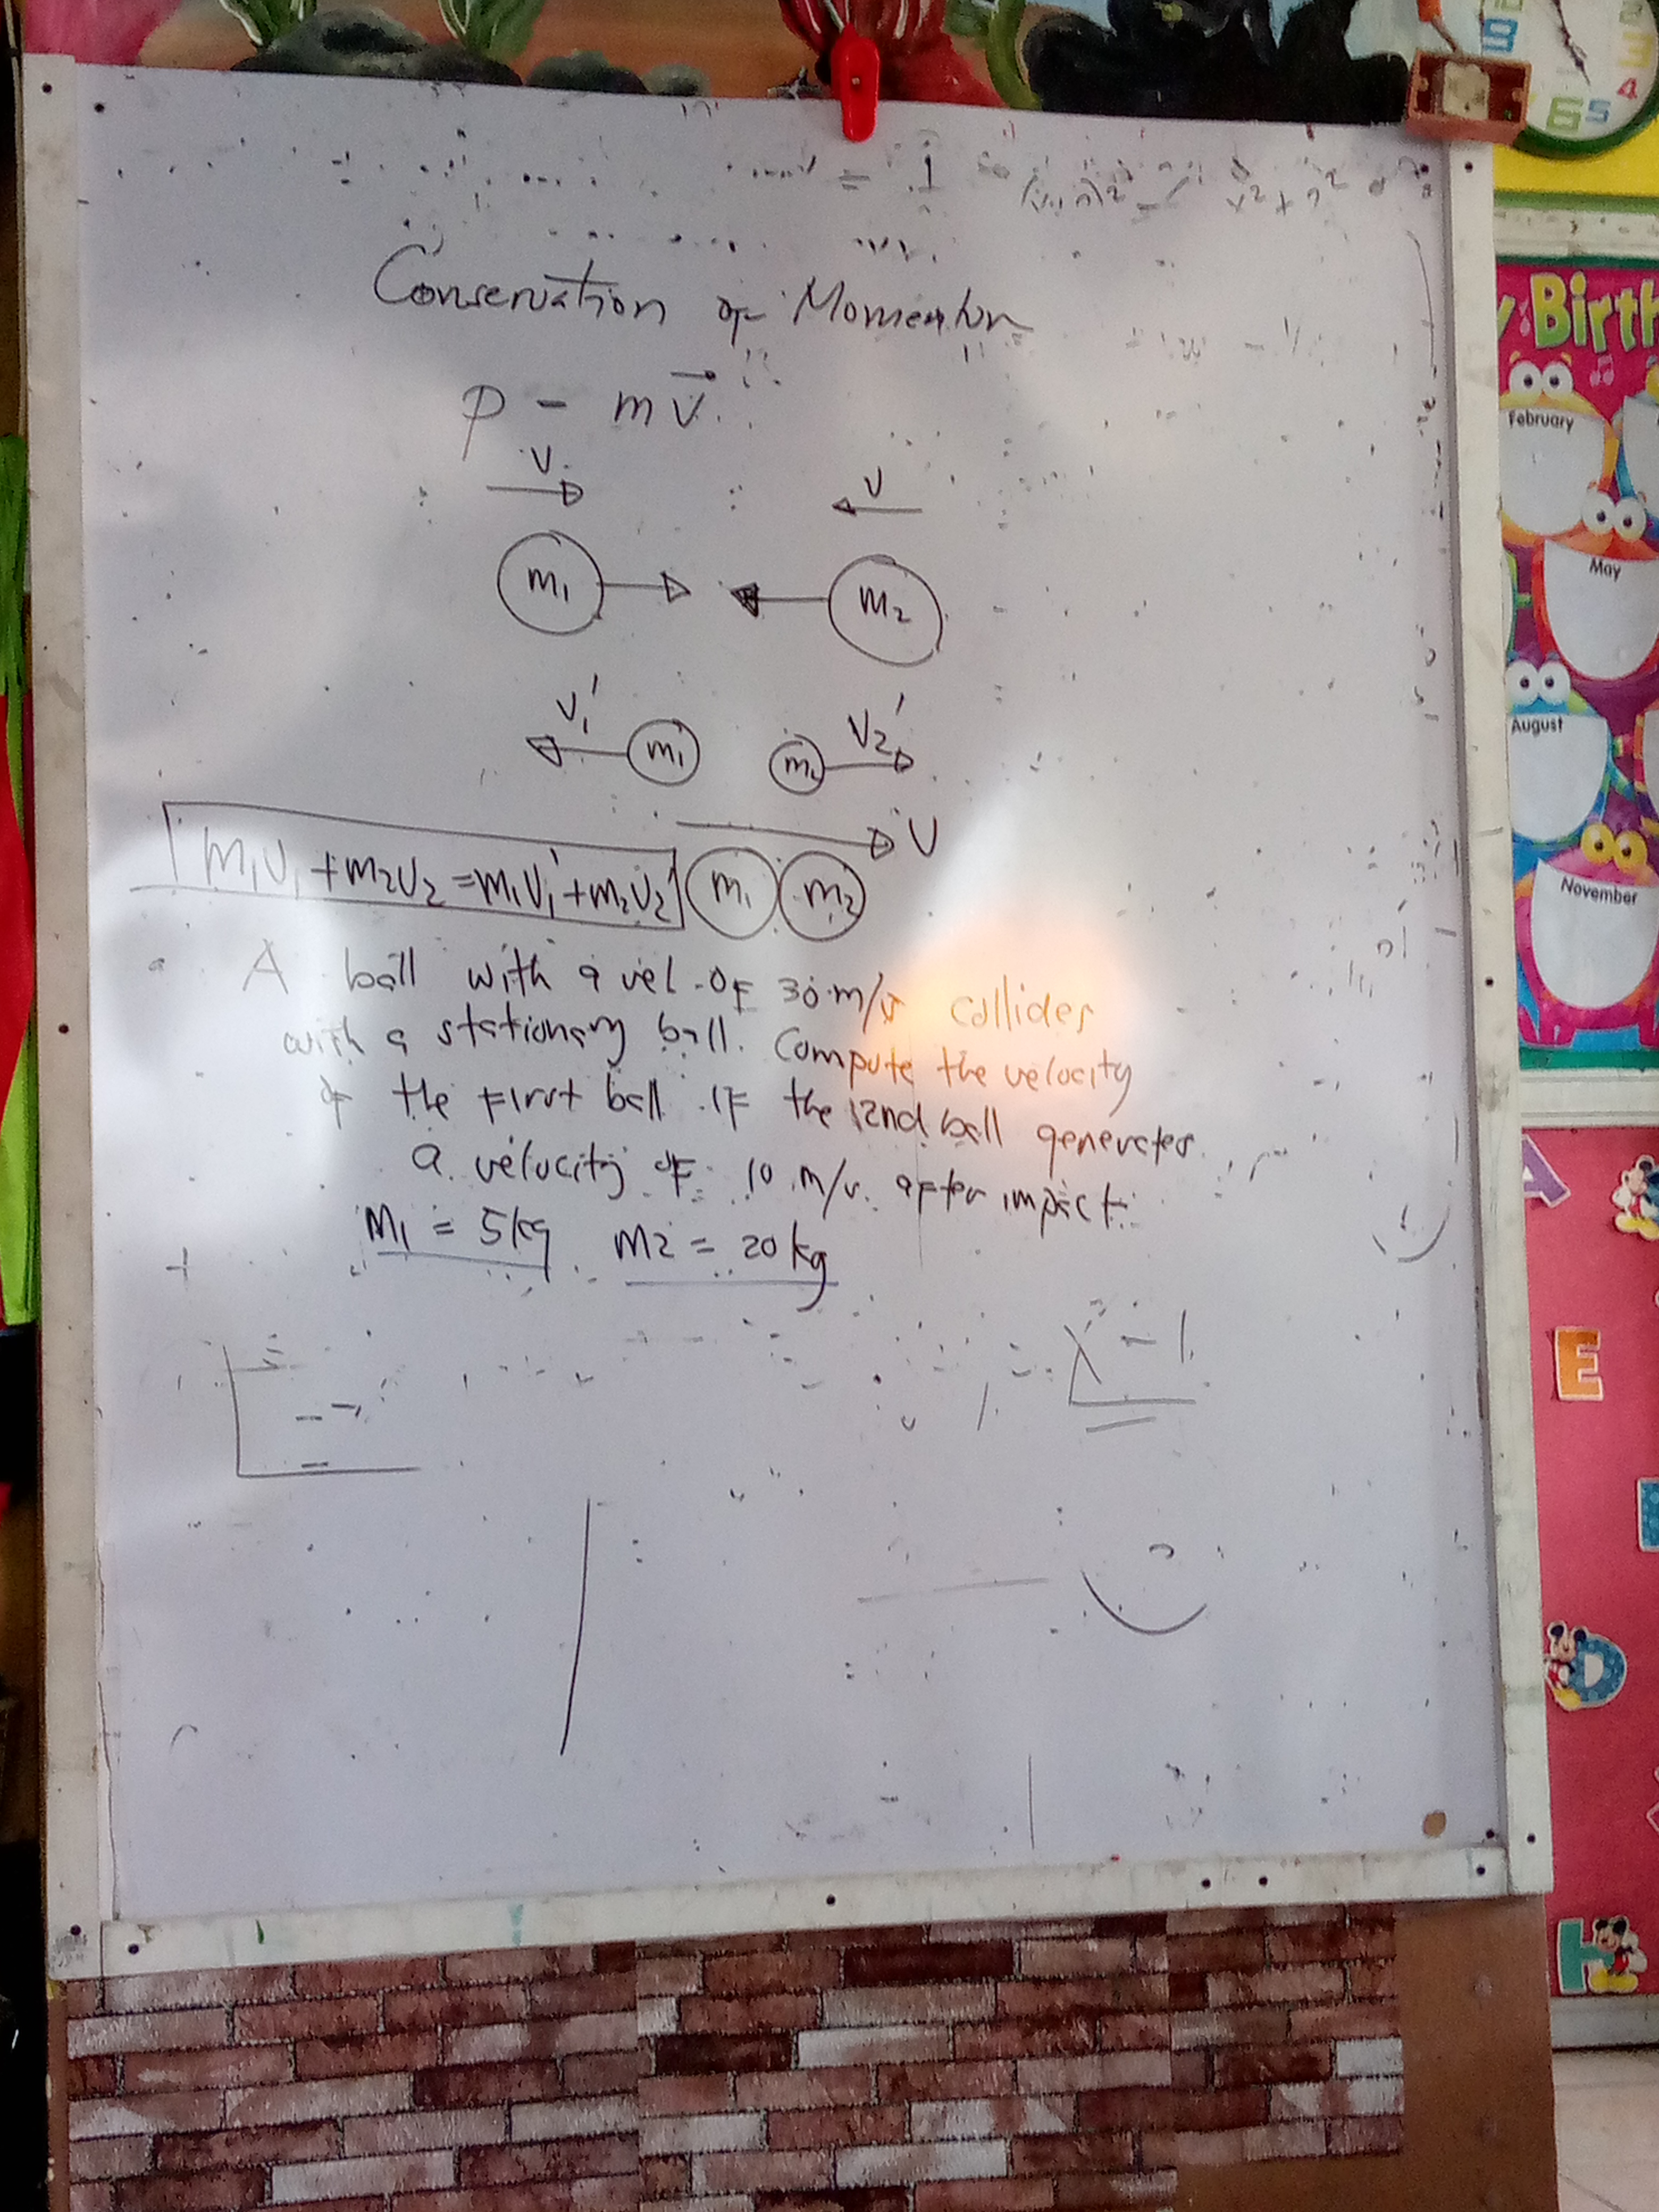 Conservation of Momentum
p = m v
v
v
m1
m2
v1'
v2'
m1
m2
v
m1v1 + m2v2 = m1v1' + m2v2'
m1
m2
A ball with a vel. of 30 m/s collides
with a stationary ball. Compute the velocity
of the first ball if the 2nd ball generates
a velocity of 10 m/s. after impact.
m1 = 5kg m2 = 20kg
x - 1
y Birth
February
May
August
November
6 5 4
A
E
D
H